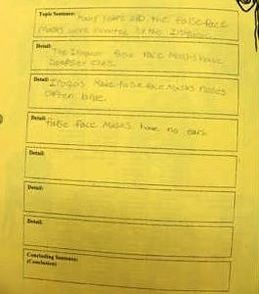 Topic Sentence: Many years ago the False Face
Masks were created by the Iroquois.
Detail: The Iroquois False Face Masks have
Deepset eyes.
Detail: Iroquois Make False Face Masks Noses
Often large.
Detail: False Face Masks have no ears
Detail:
Detail:
Detail:
Concluding Sentence:
(Conclusion)